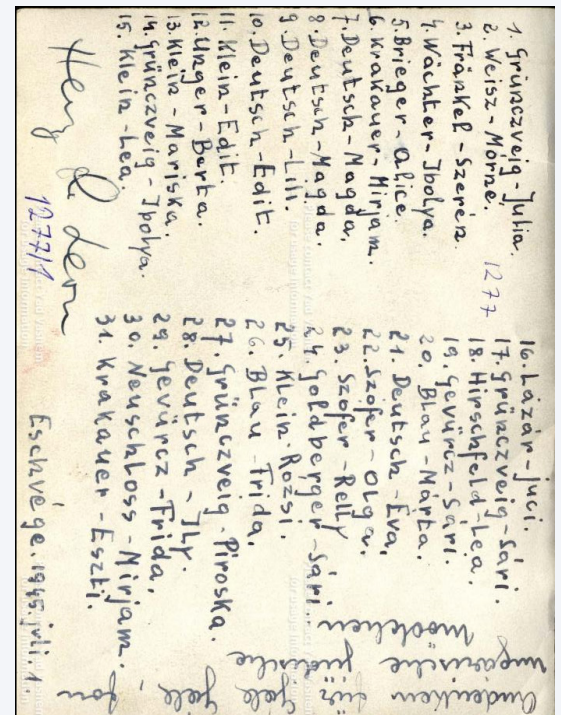 1. Grünczveig-Julia.
2. Weisz-Mórné.
3. Fränkel-Szerén.
4. Wächter-Ibolya.
5. Brieger-Alice.
6. Krakauer-Mirjam.
7. Deutsch-Magda.
8. Deutsch-Magda.
9. Deutsch-Lili.
10. Deutsch-Edit.
11. Klein-Edit.
12. Unger-Berta.
13. Klein-Mariska.
14. Grünczveig-Ibolya.
15. Klein-Lea.
1277
16. Lázár-Juci.
17. Grünczveig-Sári.
18. Hirschfeld-Lea.
19. Gevürcz-Sári.
20. Blau-Márta.
21. Deutsch-Eva.
22. Szófer-Olga.
23. Szófer-Relly
24. Goldberger-Sári.
25. Klein-Rozsi.
26. Blau-Frida.
27. Grünczveig-Piroska.
28. Deutsch-Ily.
29. Gevürcz-Frida.
30. Neuschloss-Mirjam.
31. Krakauer-Eszti.
1277/1
Eschvége. 1945. juli 1.
Andenken für
ungarische jüdische